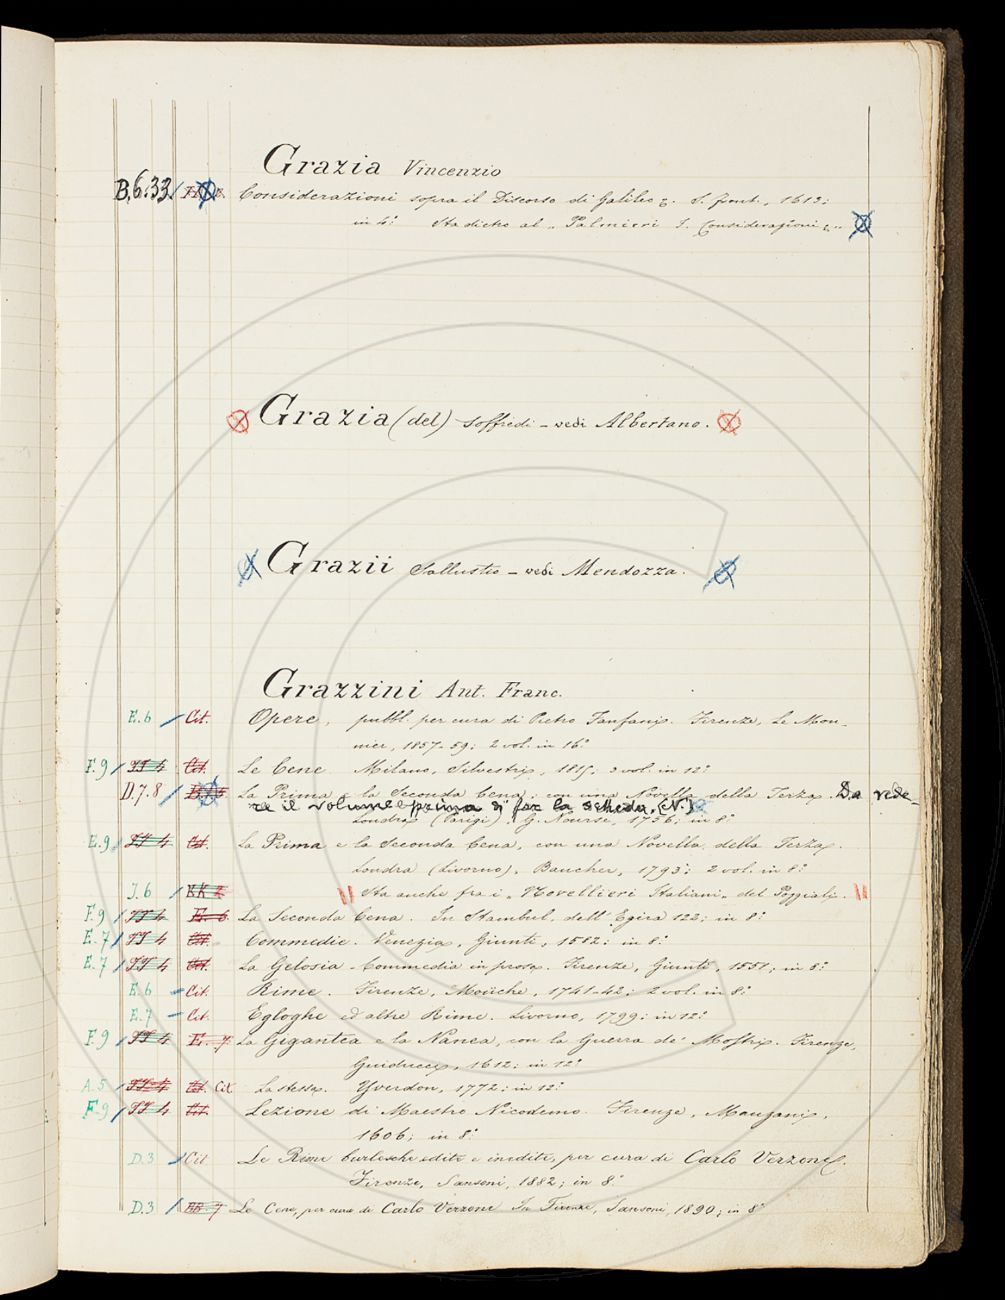 Grazia Vincenzio
B.6.33. Considerazioni sopra il Discorso di Galileo &. S. front., 1613;
in 4.° Sta dietro al „ Palmieri I. Considerazioni &. „
Grazia (del) Soffredi – vedi Albertano.
Grazii Sallustio – vedi Mendozza.
Grazzini Ant. Franc.
E.6 Cit. Opere, pubbl. per cura di Pietro Fanfani. Firenze, Le Mon-
nier, 1857-59; 2 vol. in 16.°
F.9 II 4 Cit. Le Cene. Milano, Silvestri, 1815; 3 vol. in 12.°
D.7.8 La Prima e la Seconda Cena, con una Novella della Terza. Da vede-
re il volume prima di far la scheda. (N.)
Londra (Parigi), G. Nourse, 1756; in 8.°
E.9 II 4 Cit. La Prima e la Seconda Cena, con una Novella della Terza.
Londra (Livorno), Baucher, 1793; 2 vol. in 8.°
I.6 KK 2 Sta anche fra i „ Novellieri Italiani „ del Poggiali.
F.9 II 4 E. 6 La Seconda Cena. In Stambul, dell' Egira 122; in 8.°
E.7 II 4 Cit. Commedie. Venezia, Giunti, 1582; in 8.°
E.7 II 4 Cit. La Gelosia – Commedia in prosa. Firenze, Giunti, 1551; in 8.°
E.6 – Cit. Rime. Firenze, Moücke, 1741-42; 2 vol. in 8.°
E.7 – Cit. Egloghe ed altre Rime. Livorno, 1799; in 12.°
F.9 II 4 E. 7 La Gigantea e la Nanea, con la Guerra de' Mostri. Firenze,
Guiducci, 1612; in 12.°
A.5 II 4 Cit. Cit. La stessa. Yverdon, 1772; in 12.°
F.9 II 4 Cit. Lezione di Maestro Nicodemo. Firenze, Manzani,
1606; in 8.°
D.3 Cit Le Rime burlesche edite e inedite, per cura di Carlo Verzone.
Firenze, Sansoni, 1882; in 8.°
D.3 BB 7 Le Cene, per cura di Carlo Verzone In Firenze, Sansoni, 1890; in 8.°